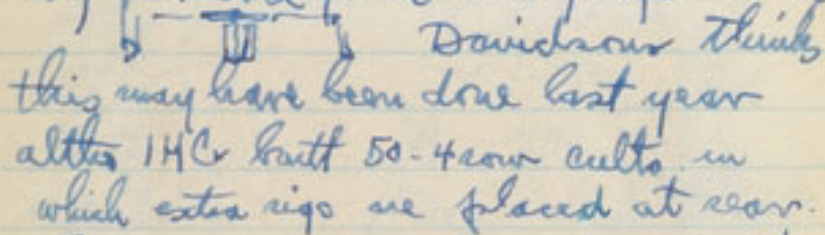 Davidson thinks
this may have been done last year
altho IHCr built 50-4 row cults in
which extra rigs are placed at rear.